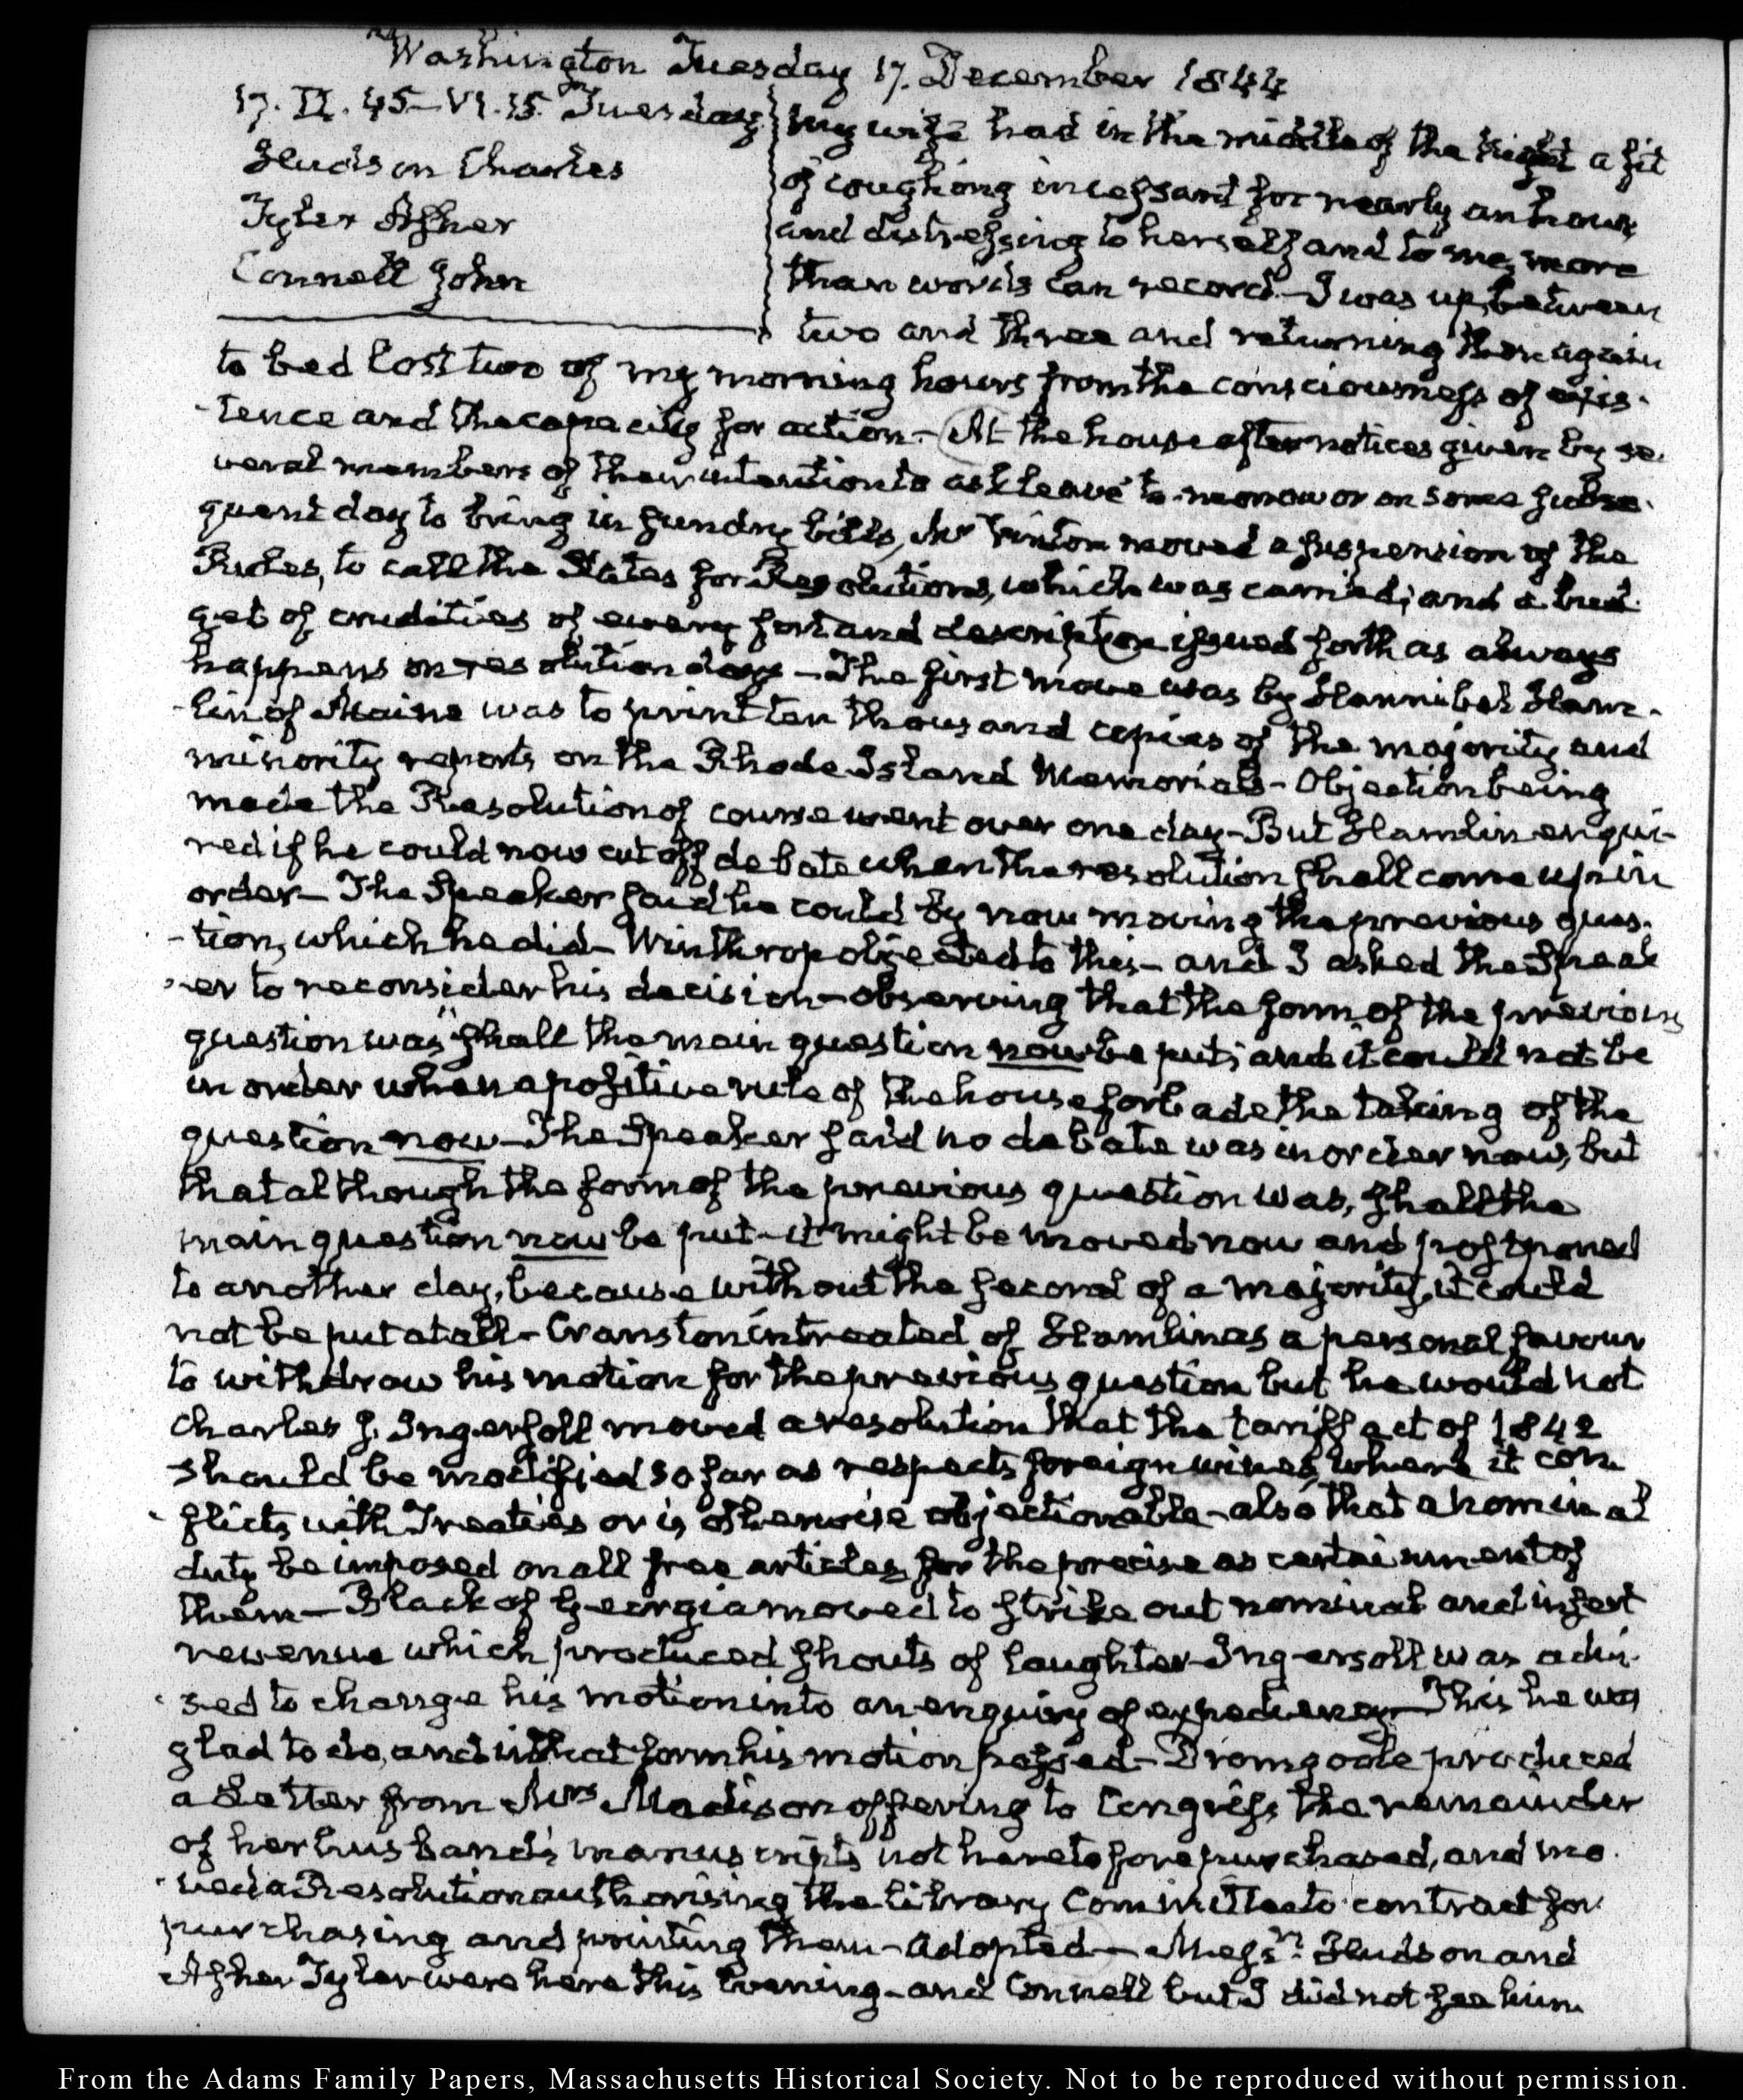 Washington Tuesday 17. December 1844
17. IV. 45–VI. 15. Tuesday
Hudson Charles
Tyler Asher
Connell John
My wife had in the middle of the night a fit
of coughing incessant for nearly an hour,
and distressing to herself and to me, more
than words can record. I was up, between
two and three and returning then again
to bed lost two of my morning hours from the consciousness of exis-
tence and the capacity for action. — At the house after notices given by se-
veral members of their intention to ask leave to-morrow or on some subse-
quent day to bring in sundry bills, Mr Vinton moved a suspension of the
Rules, to call the States for Resolutions, which was carried; and a bud-
get of crudities of every sort and description issued forth as always
happens on resolution days — The first move was by Hannibal Ham-
lin of Maine was to print ten thousand copies of the majority and
minority reports on the Rhode Island Memorials — Objection being
made the Resolution of course went over one day — But Hamlin enqui-
red if he could now cut off debate when the resolution shall come up in
order — The Speaker said he could by now moving the previous ques-
tion, which he did — Winthrop objected to this — and I asked the Speak-
er to reconsider his decision — observing that the form of the previous
question was "shall the main question now be put; and it could not be
in order when a positive rule of the house forbade the taking of the
question now — The Speaker said no debate was in order now, but
that although the form of the previous question was, shall the
main question now be put — it might be moved now and postponed
to another day, because without the second of a majority, it could
not be put at all — Cranston intreated of Hamlin as a personal favour
to withdraw his motion for the previous question but he would not
Charles J. Ingersoll moved a resolution that the tariff act of 1842
should be modified so far as respects foreign wines, where it con-
flicts with Treaties or is otherwise objectionable — also that a nominal
duty be imposed on all free articles for the precise ascertainment of
them — Black of Georgia moved to strike out nominal and insert
revenue which produced shouts of laughter — Ingersoll was advi-
sed to change his motion into an enquiry of expediency — This he was
glad to do, and in that form his motion passed — Dromgoole produced
a Letter from Mrs Madison offering to Congress the remainder
of her husband's manuscripts not heretofore purchased, and mo-
ved a Resolution authorising the library Committee to contract for
purchasing and printing them — adopted — Messrs. Hudson and
Asher Tyler were here this Evening — and Connell but I did not see him.
From the Adams Family Papers, Massachusetts Historical Society. Not to be reproduced without permission.